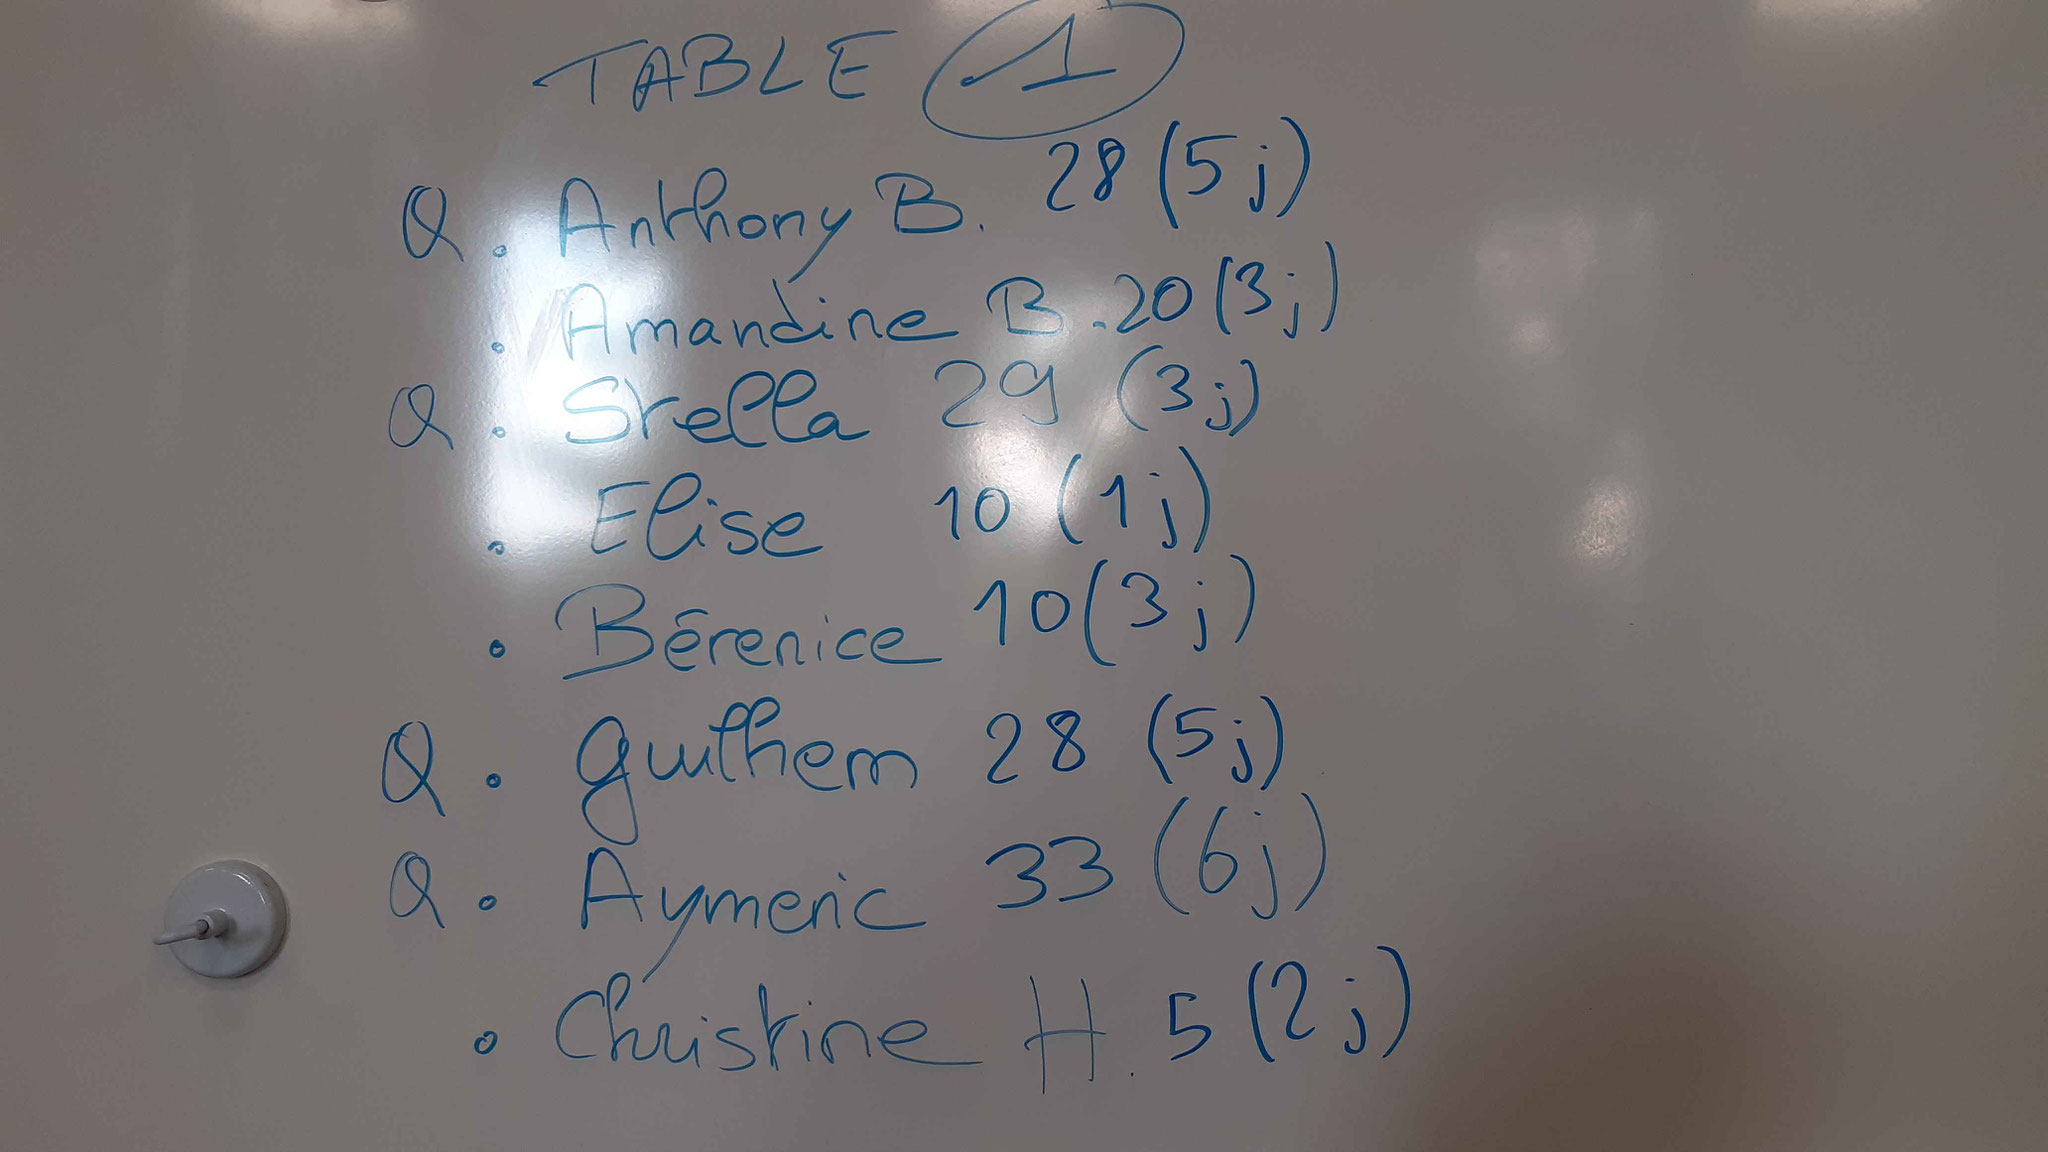 TABLE 1
Q . Anthony B. 28 (5j)
. Amandine B. 20 (3j)
Q . Stella 29 (3j)
. Elise 10 (1j)
. Bérenice 10 (3j)
Q . Guilhem 28 (5j)
Q . Aymeric 33 (6j)
. Christine H. 5 (2j)